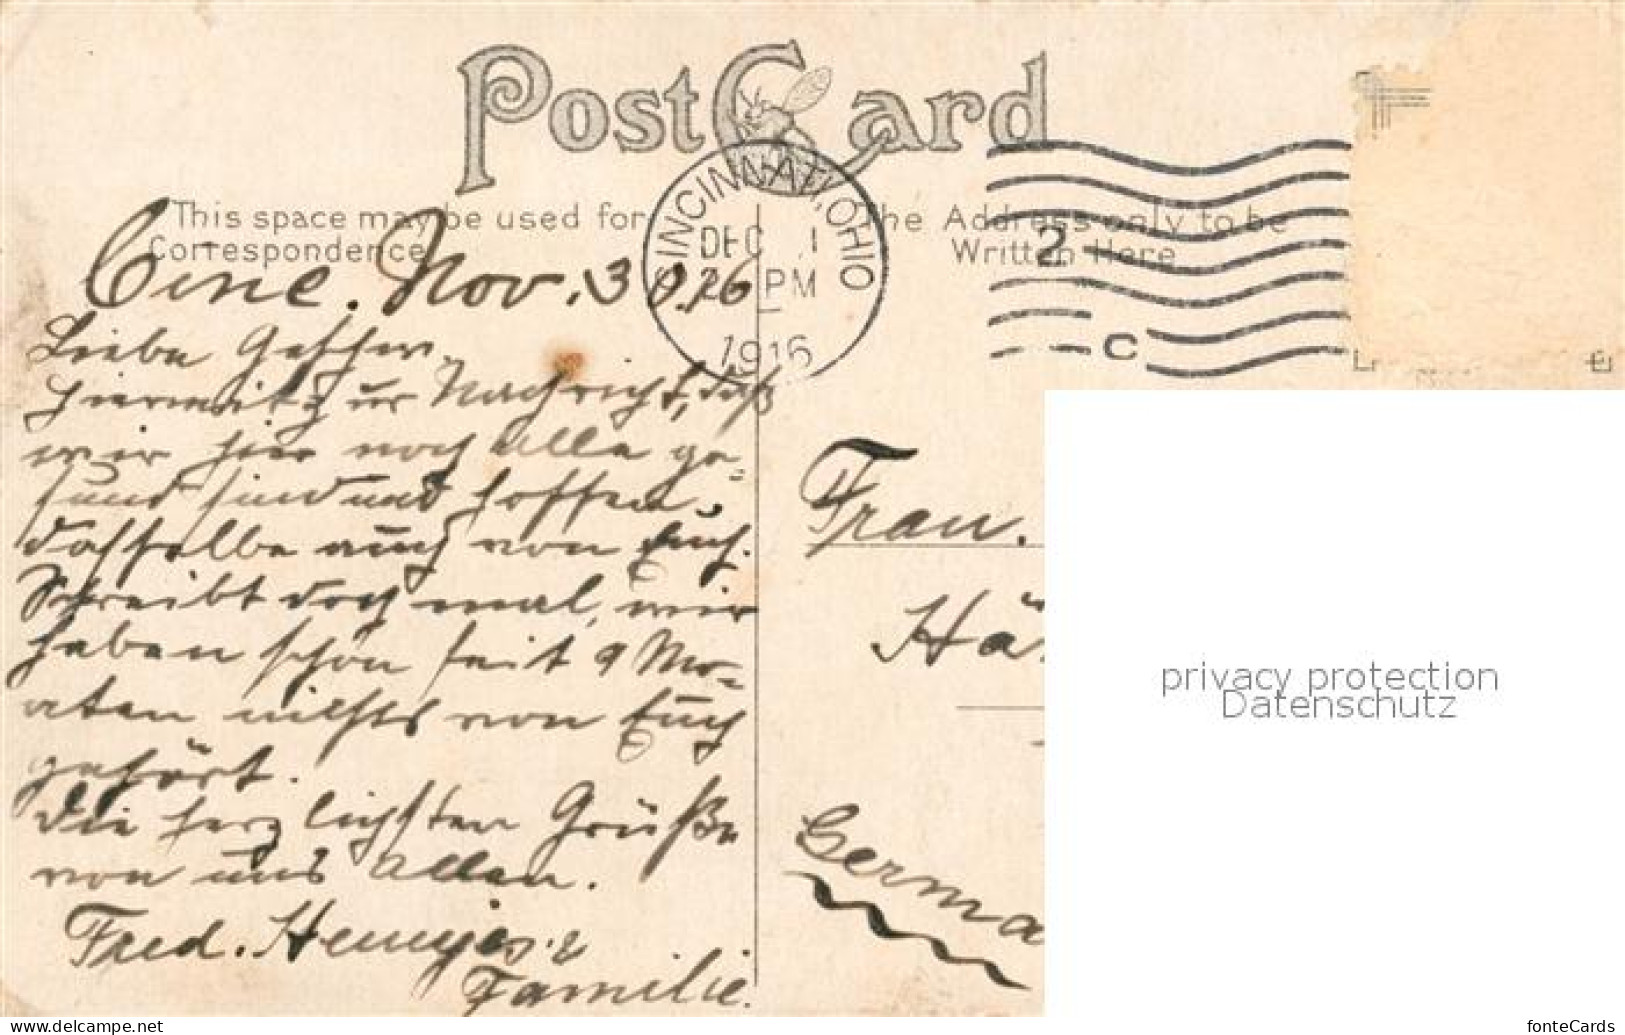 Post Card
This space may be used for
Correspondence
The Address only to be
Written Here
CINCINNATI, OHIO
DEC 1
2 PM
1916
2
C
Cinc. Nov. 30. 16
Liebe Geschw.
Hiermit zur Nachricht, daß
wir hier noch alle ge-
sund sind und hoffen,
dasselbe auch von Euch.
Schreibt doch mal, wir
haben schon seit 9 Mo-
aten nichts von Euch
gehört.
Die herzlichsten Grüße
von uns Allen.
Fred.
Familie.
Frau.
Hä
Germa
privacy protection
Datenschutz
https://www.delcampe.net
fonteCards